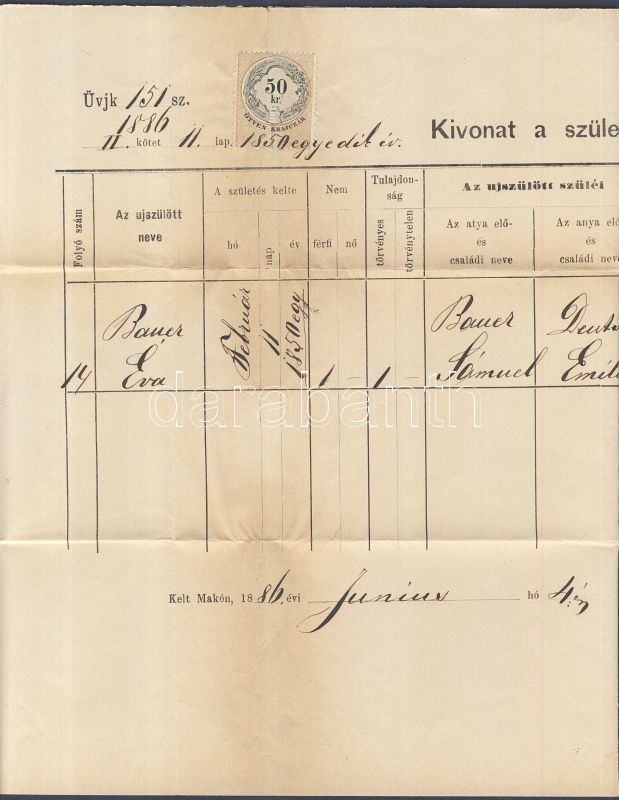 Üvjk 151 sz.
1886
II. kötet 11. lap. 1850 egyedik év.
50
kr.
ÖTVEN KRAJCZÁR
Kivonat a szüle
Folyó szám
Az ujszülött
neve
A születés kelte
hó
nap
év
Nem
férfi
nő
Tulajdon-
ság
törvényes
törvénytelen
Az ujszülött szüléi
Az atya elő-
és
családi neve
Az anya elő
és
családi neve
14
Bauer
Éva
Február
11
1850 egy
1
—
1
—
Bauer
Sámuel
Deuts
Emíli
darabanth
Kelt Makón, 1886. évi Junius hó 4én